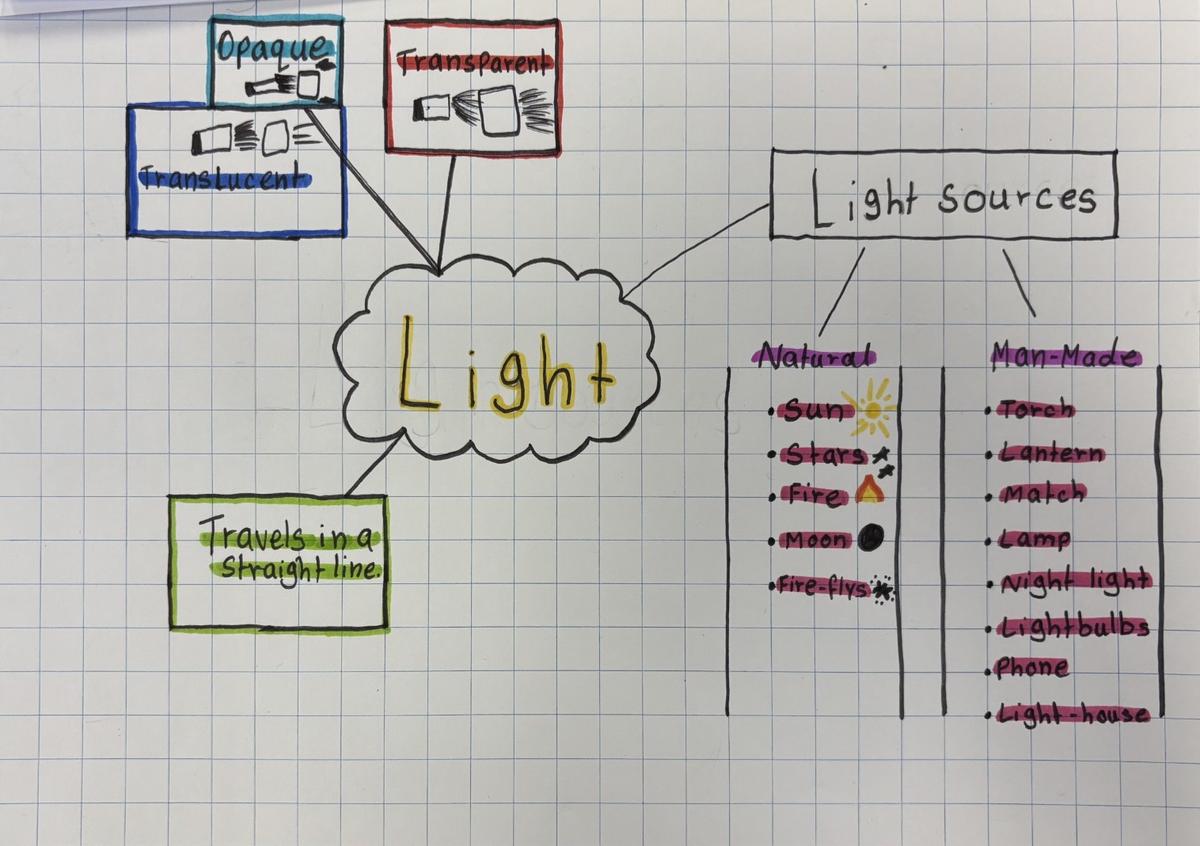 Opaque
Transparent
Translucent
Light sources
Light
Natural
Sun
Stars
Fire
Moon
Fire-flys
Man-Made
Torch
Lantern
Match
Lamp
Night light
Lightbulbs
Phone
Light-house
Travels in a
straight line.